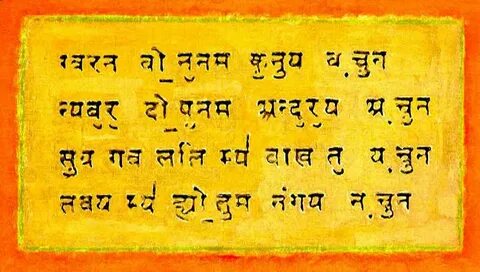 ग्वरन वो॒नुनम कु॒नुय व॒चुन
न्यबु॒रु॒ दो॒पुनम अन्दु॒रु॒य अ॒चुन
सुय गव ललि म्यॅ वाख तु॒ व॒चुन
तवय म्यॅ ह्यो॒तुम नंगय न॒चुन